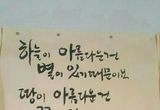 하늘이 아름다운건
별이 있기때문이고
땅이 아름다운건